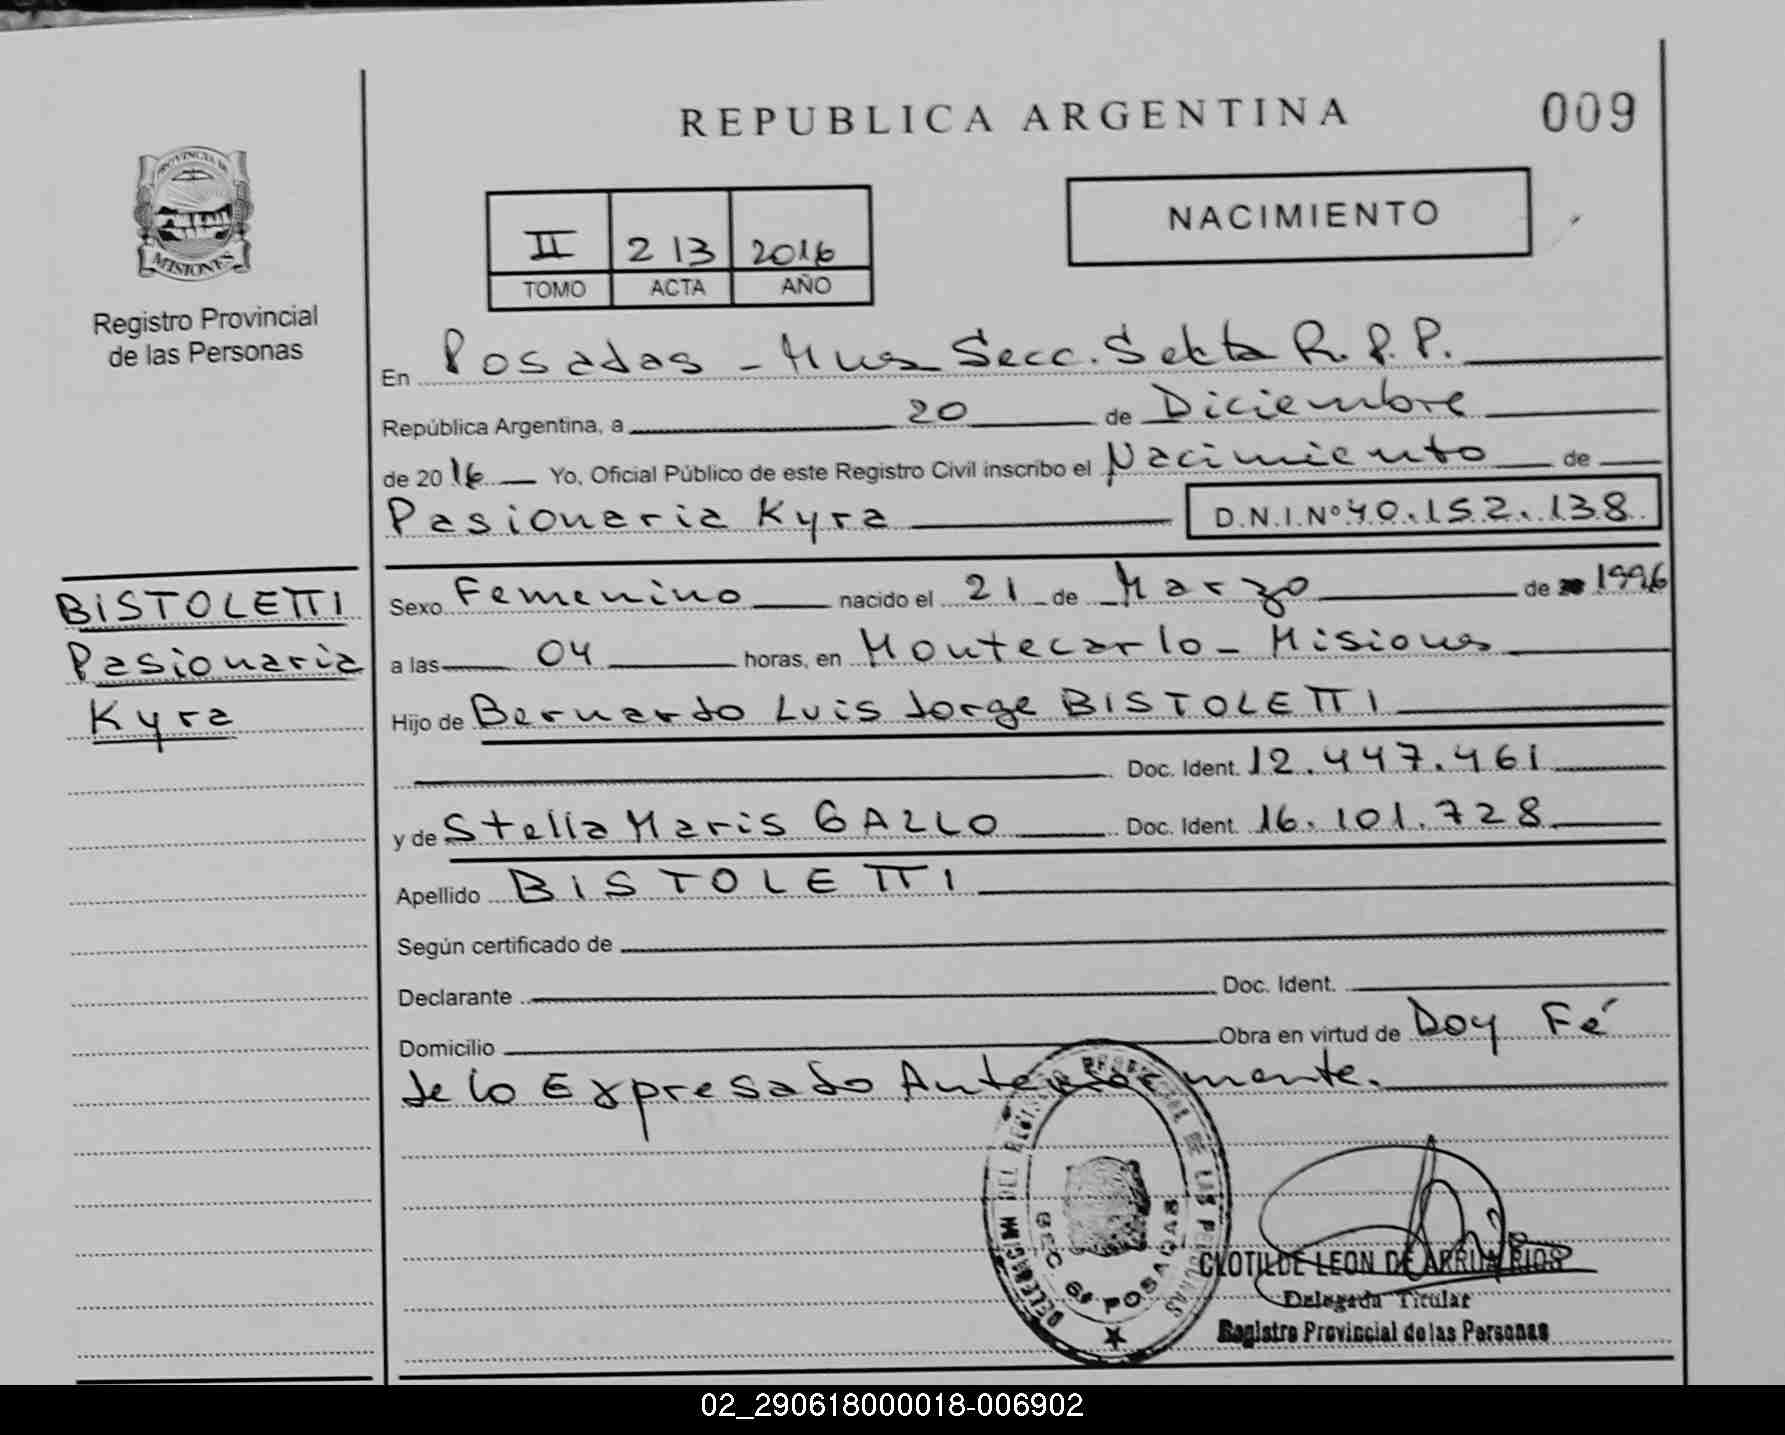 REPUBLICA ARGENTINA
009
PROVINCIA DE
MISIONES
Registro Provincial
de las Personas
II 213 2016
TOMO ACTA AÑO
NACIMIENTO
En Posadas - Mns Secc. Sekta R.P.P.
República Argentina, a 20 de Diciembre
de 2016 Yo, Oficial Público de este Registro Civil inscribo el Nacimiento de
Pasionaria Kyra D.N.I.Nº 40.152.138
BISTOLETTI
Pasionaria
Kyra
Sexo Femenino nacido el 21 de Marzo de 1996
a las 04 horas, en Montecarlo - Misiones
Hijo de Bernardo Luis Jorge BISTOLETTI
Doc. Ident. 12.447.461
y de Stella Maris GALLO Doc. Ident. 16.101.728
Apellido BISTOLETTI
Según certificado de
Declarante Doc. Ident.
Domicilio Obra en virtud de Doy Fé
de lo Expresado Anteriormente.
DELEGACION DEL REGISTRO PROVINCIAL DE LAS PERSONAS
SEC. 6ª POSADAS
CLOTILDE LEON DE ARRUA RIOS
Delegada Titular
Registro Provincial de las Personas
02_290618000018-006902